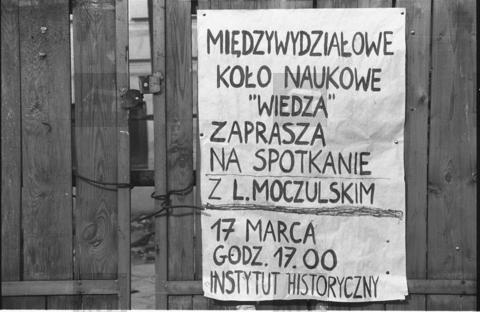 MIĘDZYWYDZIAŁOWE
KOŁO NAUKOWE
"WIEDZA"
ZAPRASZA
NA SPOTKANIE
Z L. MOCZULSKIM
17 MARCA
GODZ. 17.00
INSTYTUT HISTORYCZNY